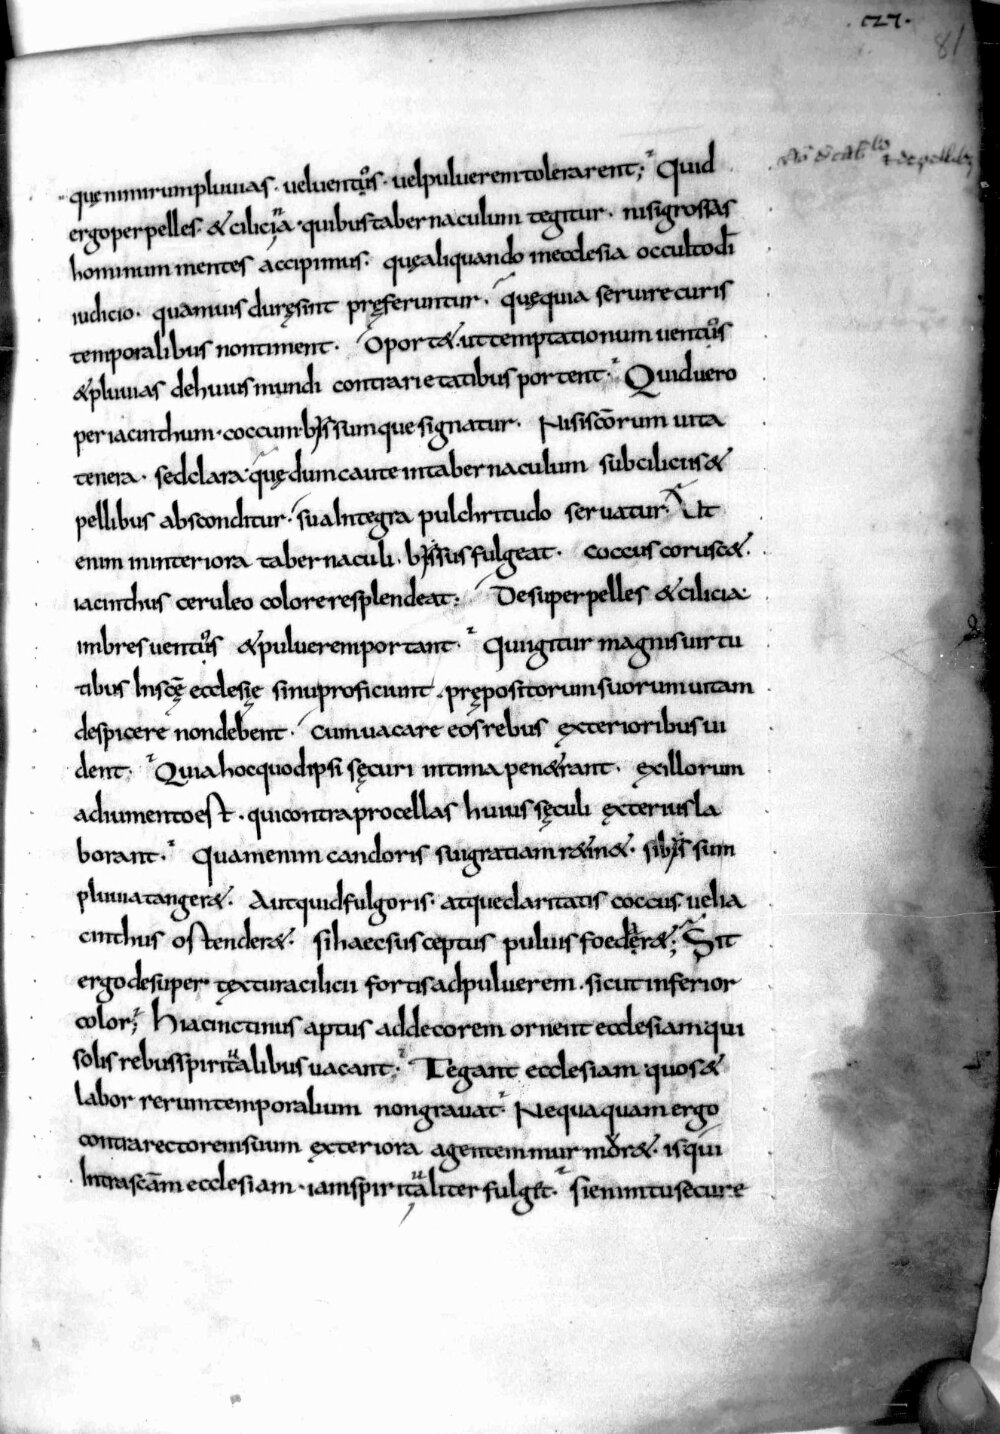 81
quę nimirum pluuias · uel uentos · uel puluerem tolerarent; Quid
ergo per pelles · & cilicia · quibus tabernaculum tegitur · nisi grossas
hominum mentes accipimus · quę aliquando in ecclesia occulto dī
iudicio · quamuis durę sint pręferuntur · quę quia seruire curis
temporalibus non timent · Oport& · ut temptationum uentos
& pluuias de huius mundi contrarietatibus portent · Quid uero
per iacinthum · coccum · bissumque signatur · Nisi scōrum uita
tenera · sed clara · quę dum caute in tabernaculum sub ciliciis &
pellibus absconditur · sua integra pulchritudo seruatur · Ut
enim in interiora tabernaculi · bissus fulgeat · coccus corusc& ·
iacinthus ceruleo colore resplendeat · Desuper pelles & cilicia
imbres uentos & puluerem portant · Qui igitur magnis uirtu
tibus in scę̄ ecclesię sinu proficiunt · prępositorum suorum uitam
despicere non debent · cum uacare eos rebus exterioribus ui
dent · Quia hoc quod ipsi sęcuri intima pen&rant · ex illorum
adiumento est · qui contra procellas huius sęculi exterius la
borant · Quam enim candoris sui gratiam r&in& · si bissum
pluuia tanger& · Aut quid fulgoris · atque claritatis coccus uel ia
cinthus ostender& · si haec susceptus puluis foedar&; Sit
ergo desuper textura cilicii fortis ad puluerem · sicut inferior
color; hiacinctinus aptus ad decorem ornent ecclesiam qui
solis rebus spiritalibus uacant · Tegant ecclesiam quos &
labor rerum temporalium non grauat · Nequaquam ergo
contra rectorem suum exteriora agentem murmor& · is qui
intra scām ecclesiam · iam spiritaliter fulg&t · Si enim tu secure